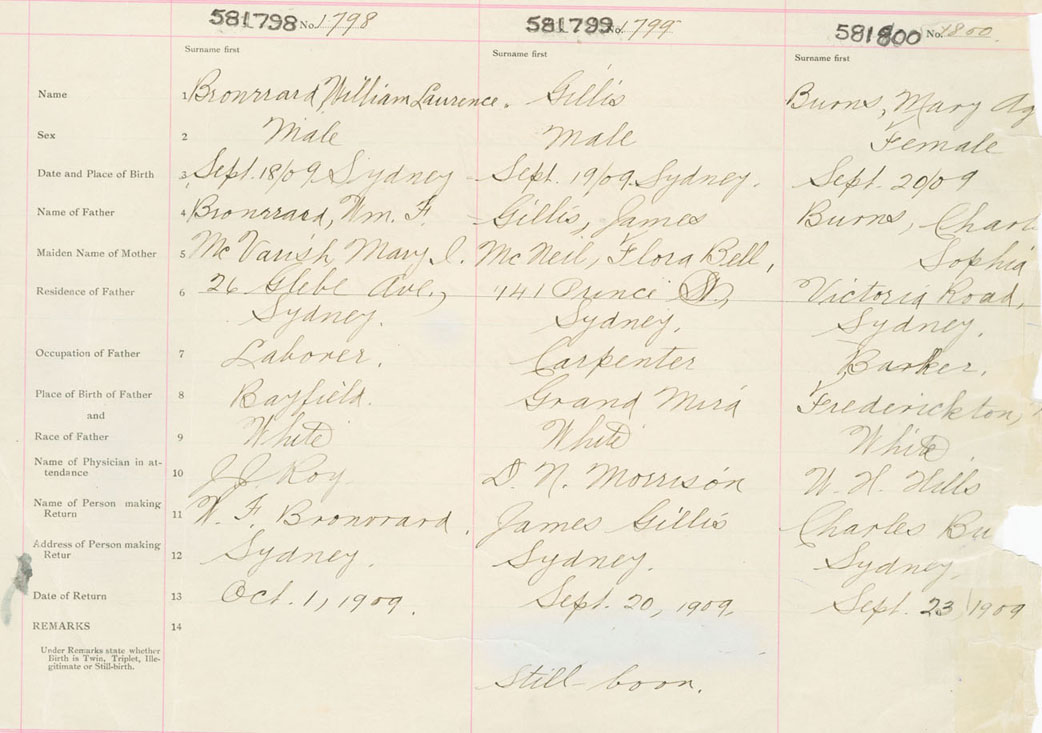 581798 No. 1798 581799 No. 1799 581800 No. 1800.
Surname first Surname first Surname first
Name 1 Bronrrard, William Laurence. Gillis Burns, Mary Ag
Sex 2 Male Male Female
Date and Place of Birth 3 Sept. 18/09 Sydney Sept. 19/09. Sydney. Sept. 20/09
Name of Father 4 Bronrrard, Wm. F. Gillis, James Burns, Charl
Maiden Name of Mother 5 McVarish Mary I. McNeil, Flora Bell, Sophia
Residence of Father 6 26 Glebe Ave., 141 Prince St, Victoria Road,
Sydney. Sydney. Sydney.
Occupation of Father 7 Laborer. Carpenter Barker.
Place of Birth of Father 8 Bayfield. Grand Mira Frederickton,
and
Race of Father 9 White White White
Name of Physician in at-
tendance 10 J J Roy D. N. Morrison W. H. Hills
Name of Person making
Return 11 W. F. Bronvrard. James Gillis Charles Bu
Address of Person making
Retur 12 Sydney. Sydney. Sydney.
Date of Return 13 Oct. 1, 1909. Sept. 20, 1909. Sept. 23, 1909
REMARKS 14
Under Remarks state whether
Birth is Twin, Triplet, Ille-
gitimate or Still-birth.
Still-born.